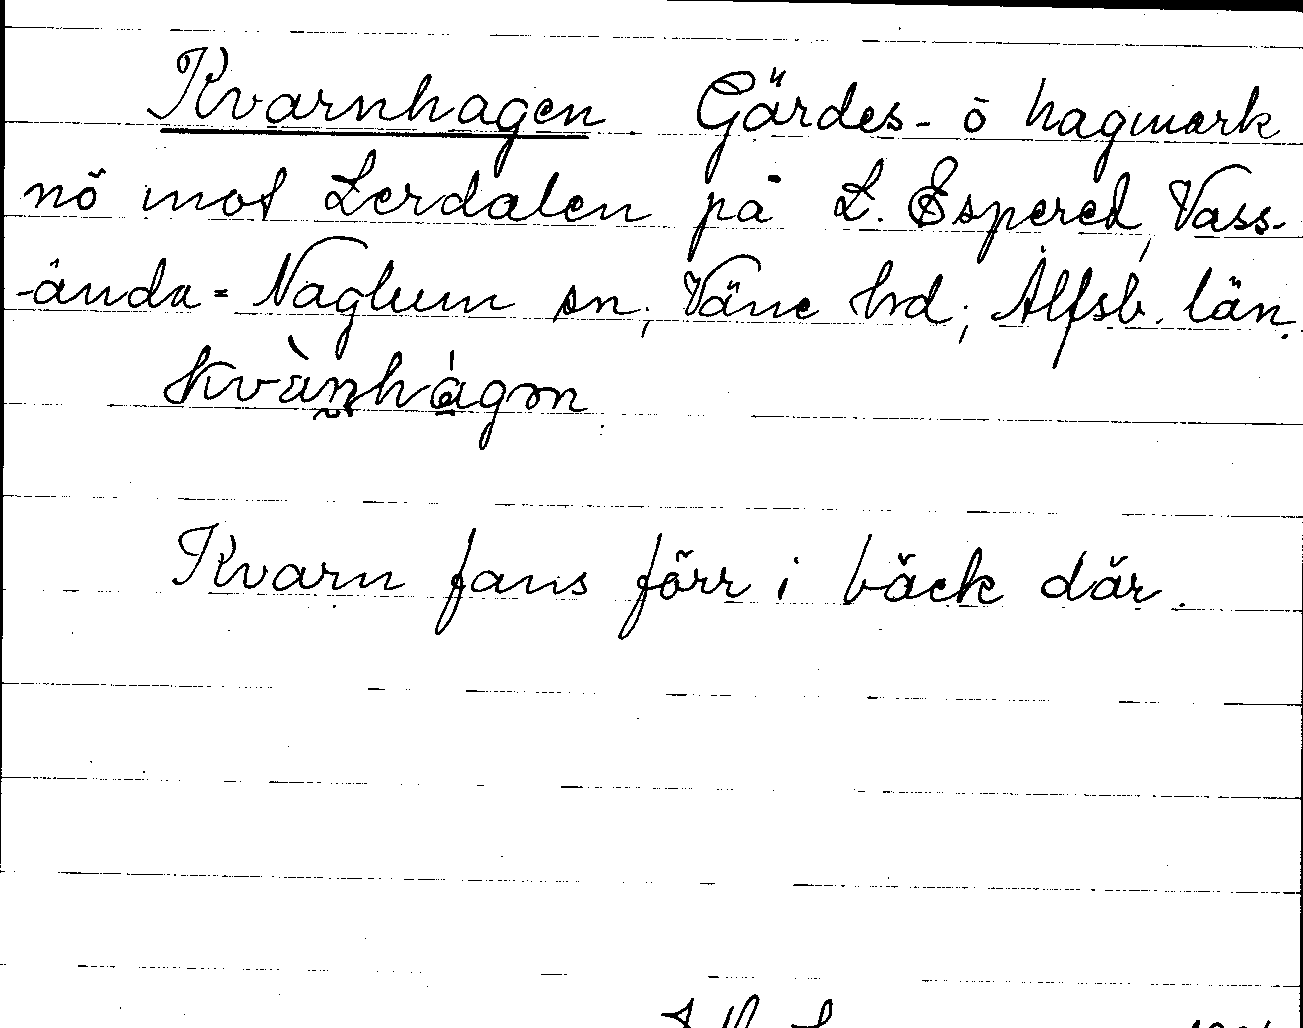 Kvarnhagen. Gärdes- o hagmark
nö mot Lerdalen på L. Espered, Vass-
-ända-Naglum sn; Väne hrd; Älfsb. län.
kvànhágən
Kvarn fans förr i bäck där.